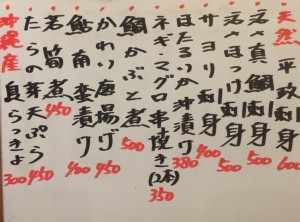 天然 平政刺身 600
活〆真鯛刺身 500
活〆ほっけ刺身 500
サヨリ刺身 400
ほたるいか沖漬ケ 380
ネギマグロ串焼き(2本) 350
鯛かぶと煮 500
かわり唐揚ゲ 450
鮎南蛮漬ケ 400
若筍煮 450
たらの芽天ぷら 450
沖縄産 島らっきょ 300